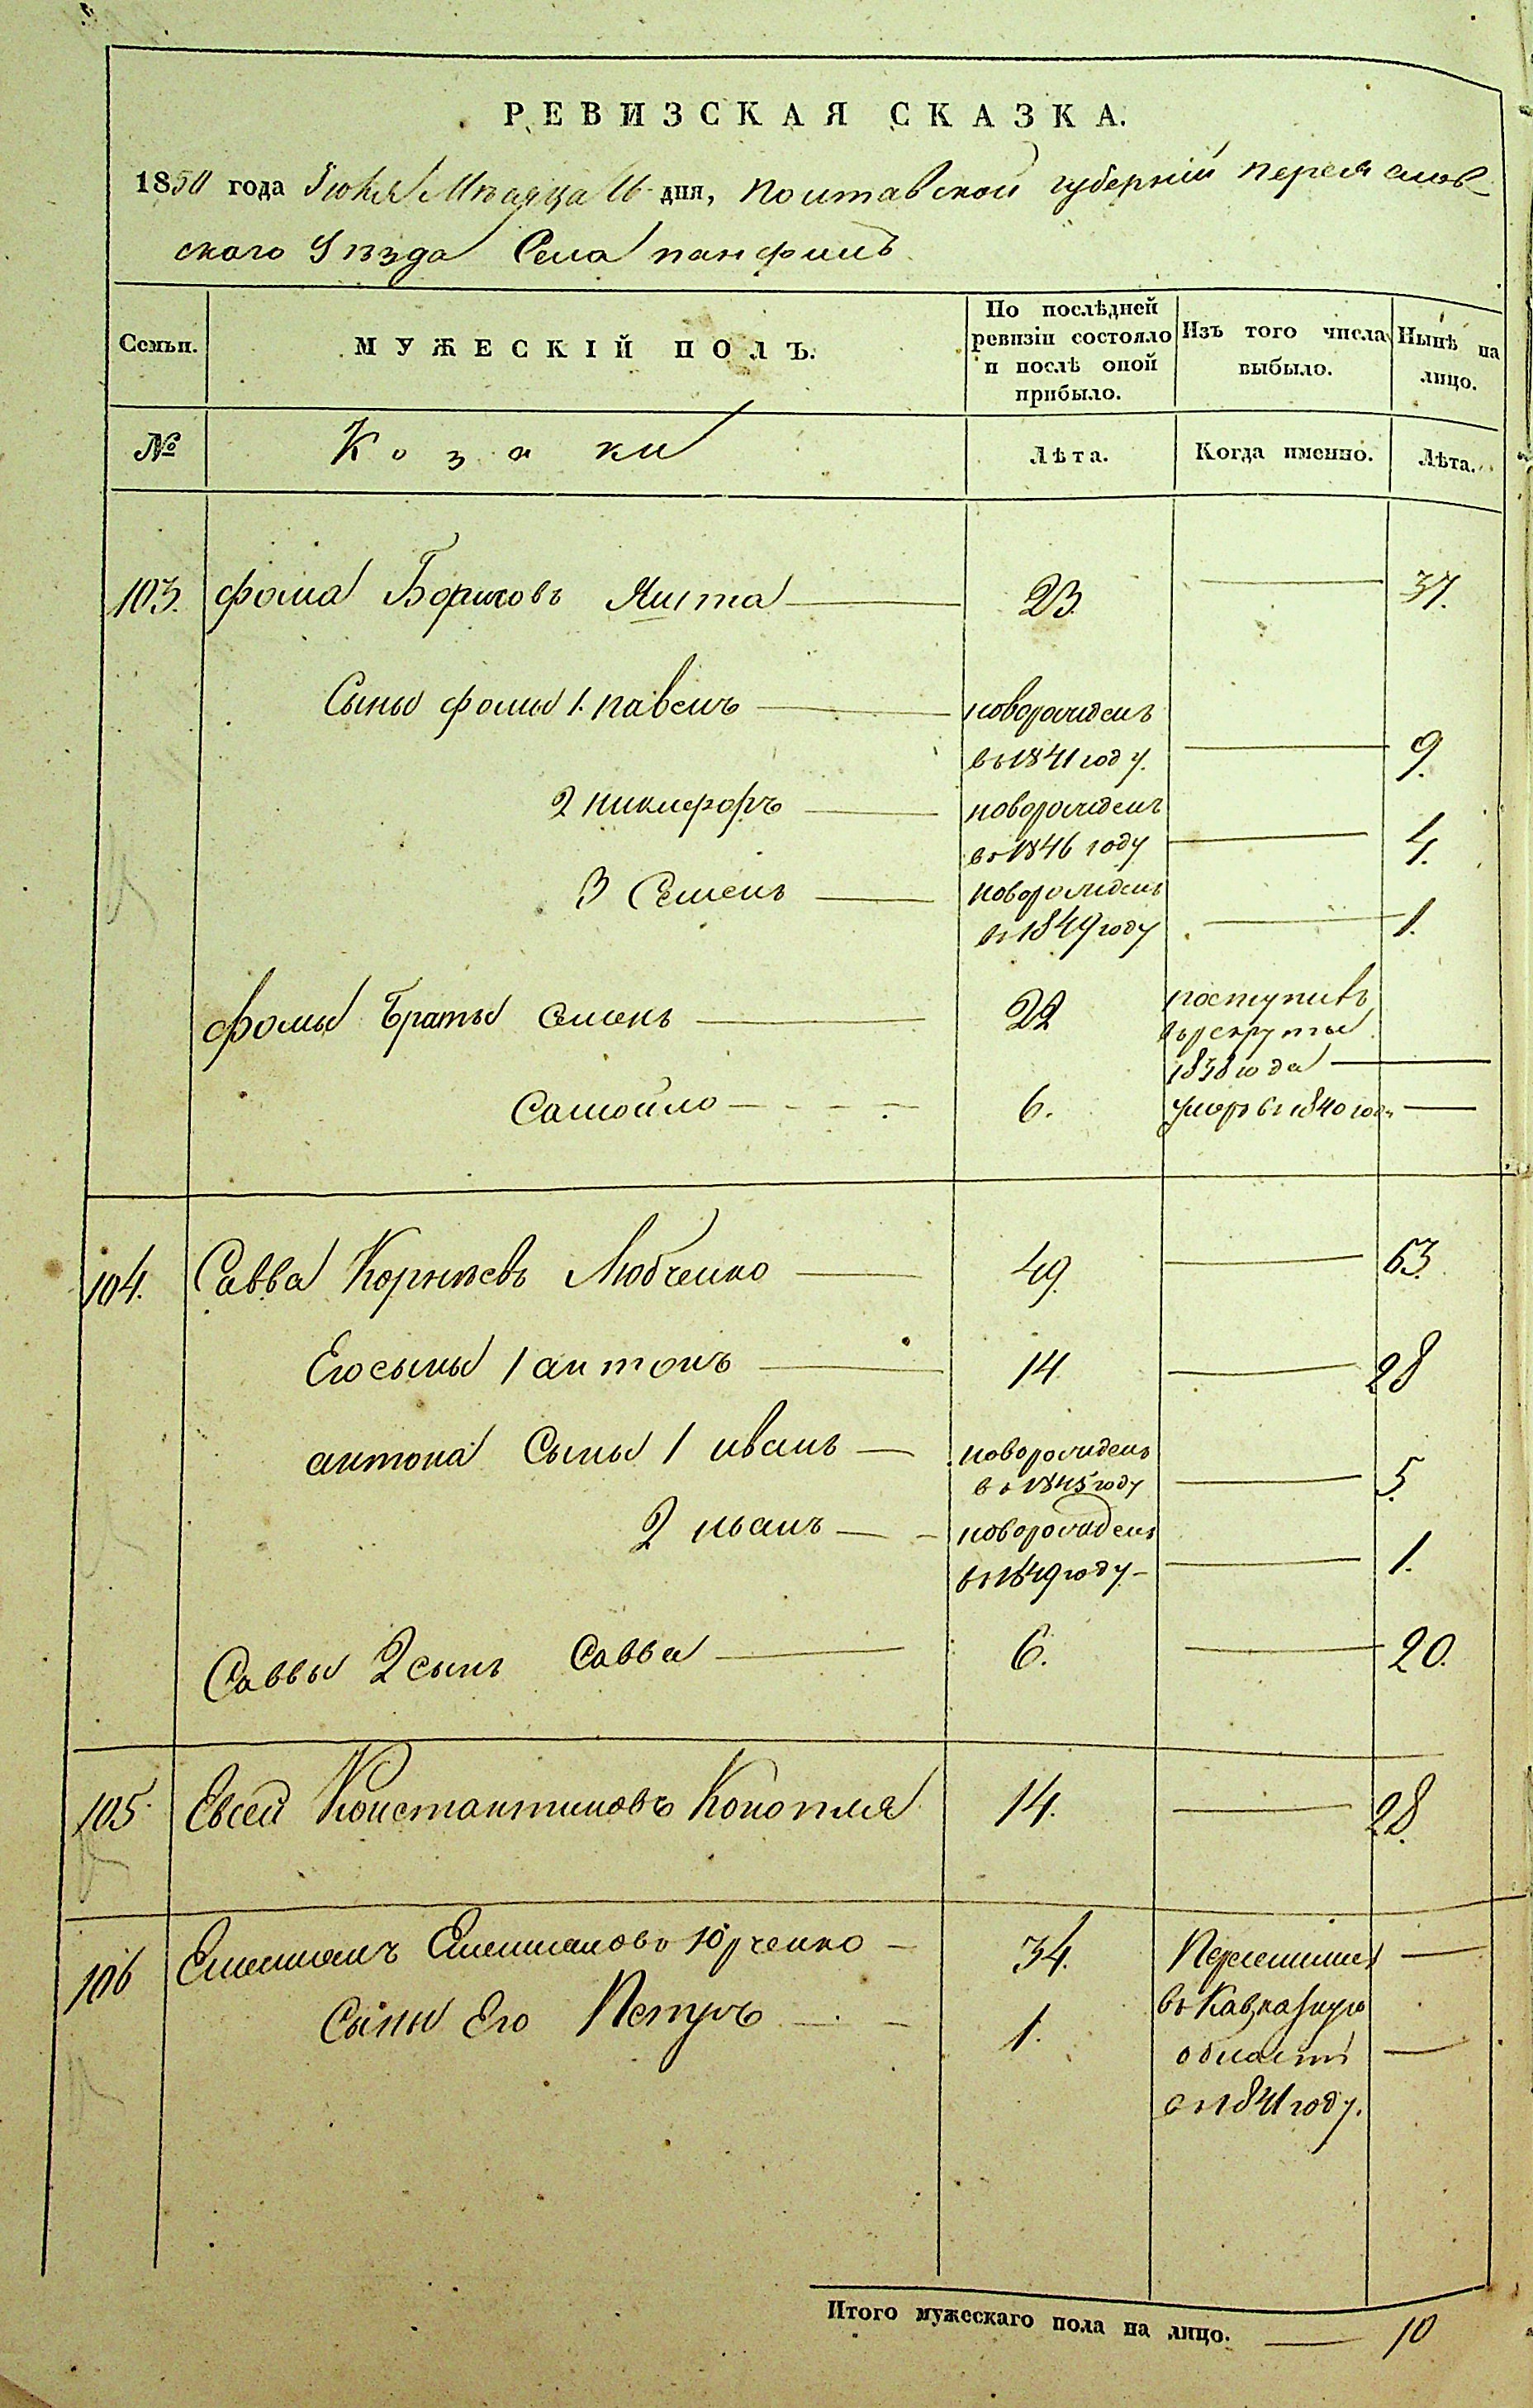 РЕВИЗСКАЯ СКАЗКА.
1850 года Июля Мѣсяца 16 дня, полтавской губерніи переяслов-
ского Уѣзда Села панфилъ
Семьи. МУЖЕСКІЙ ПОЛЪ. По послѣдней ревизіи состояло и послѣ оной прибыло. Изъ того числа выбыло. Нынѣ на лицо.
№ Козаки Лѣта. Когда именно. Лѣта.
103. фома Борисовъ 23 37.
Сыны фомы 1. павелъ новорожденъ
въ 1841 году. 9.
2 никифоръ новорожденъ
въ 1846 году 4.
3 Семенъ новорожденъ
въ 1849 году 1.
фомы Браты семенъ 22 поступивъ
въ рекруты
1838 года
Самойло 6. умеръ въ 1840 году
104. Савва Корнѣевъ Любченко 49. 63.
Его сыны 1 антонъ 14 28
антона Сыны 1 иванъ новорожденъ
въ 1845 году 5.
2 иванъ новорожденъ
въ 1849 году 1.
Саввы 2 сынъ Савва 6. 20.
105. Евсей Константиновъ Конопля 14. 28.
106 Емельянъ Емельяновъ Юрченко 34. Переселился
Сыны Его Петръ 1. въ Кавказкую
область
въ 1841 году.
Итого мужескаго пола на лицо. 10